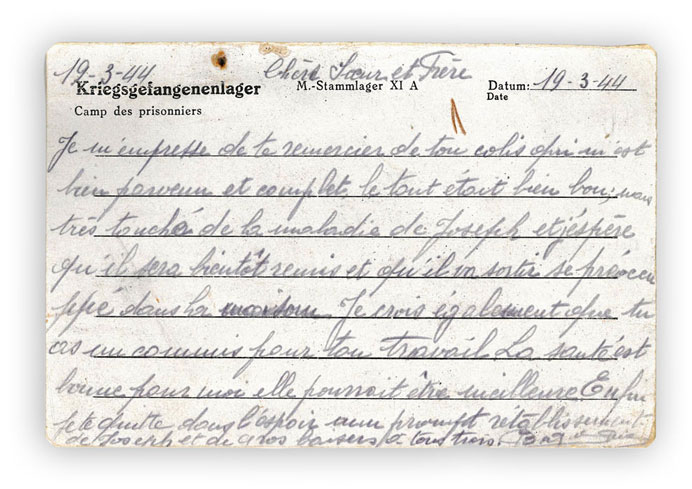 19-3-44 Chère Sœur et Frère
Kriegsgefangenenlager M.-Stammlager XI A Datum: 19-3-44
Camp des prisonniers Date
Je m'empresse de te remercier de ton colis qui m'est
bien parvenu et complet, le tout était bien bon; mais
très touché de la maladie de Joseph et j'espère
qu'il sera bientôt remis et qu'il va sortir se préoccu
ppé dans la maison Je crois également que tu
as un commis pour ton travail La santé est
bonne pour moi elle pourrait être meilleure Enfin
je te quitte dans l'espoir d'un prompt rétablissement
de Joseph et de gros baisers à tous trois.